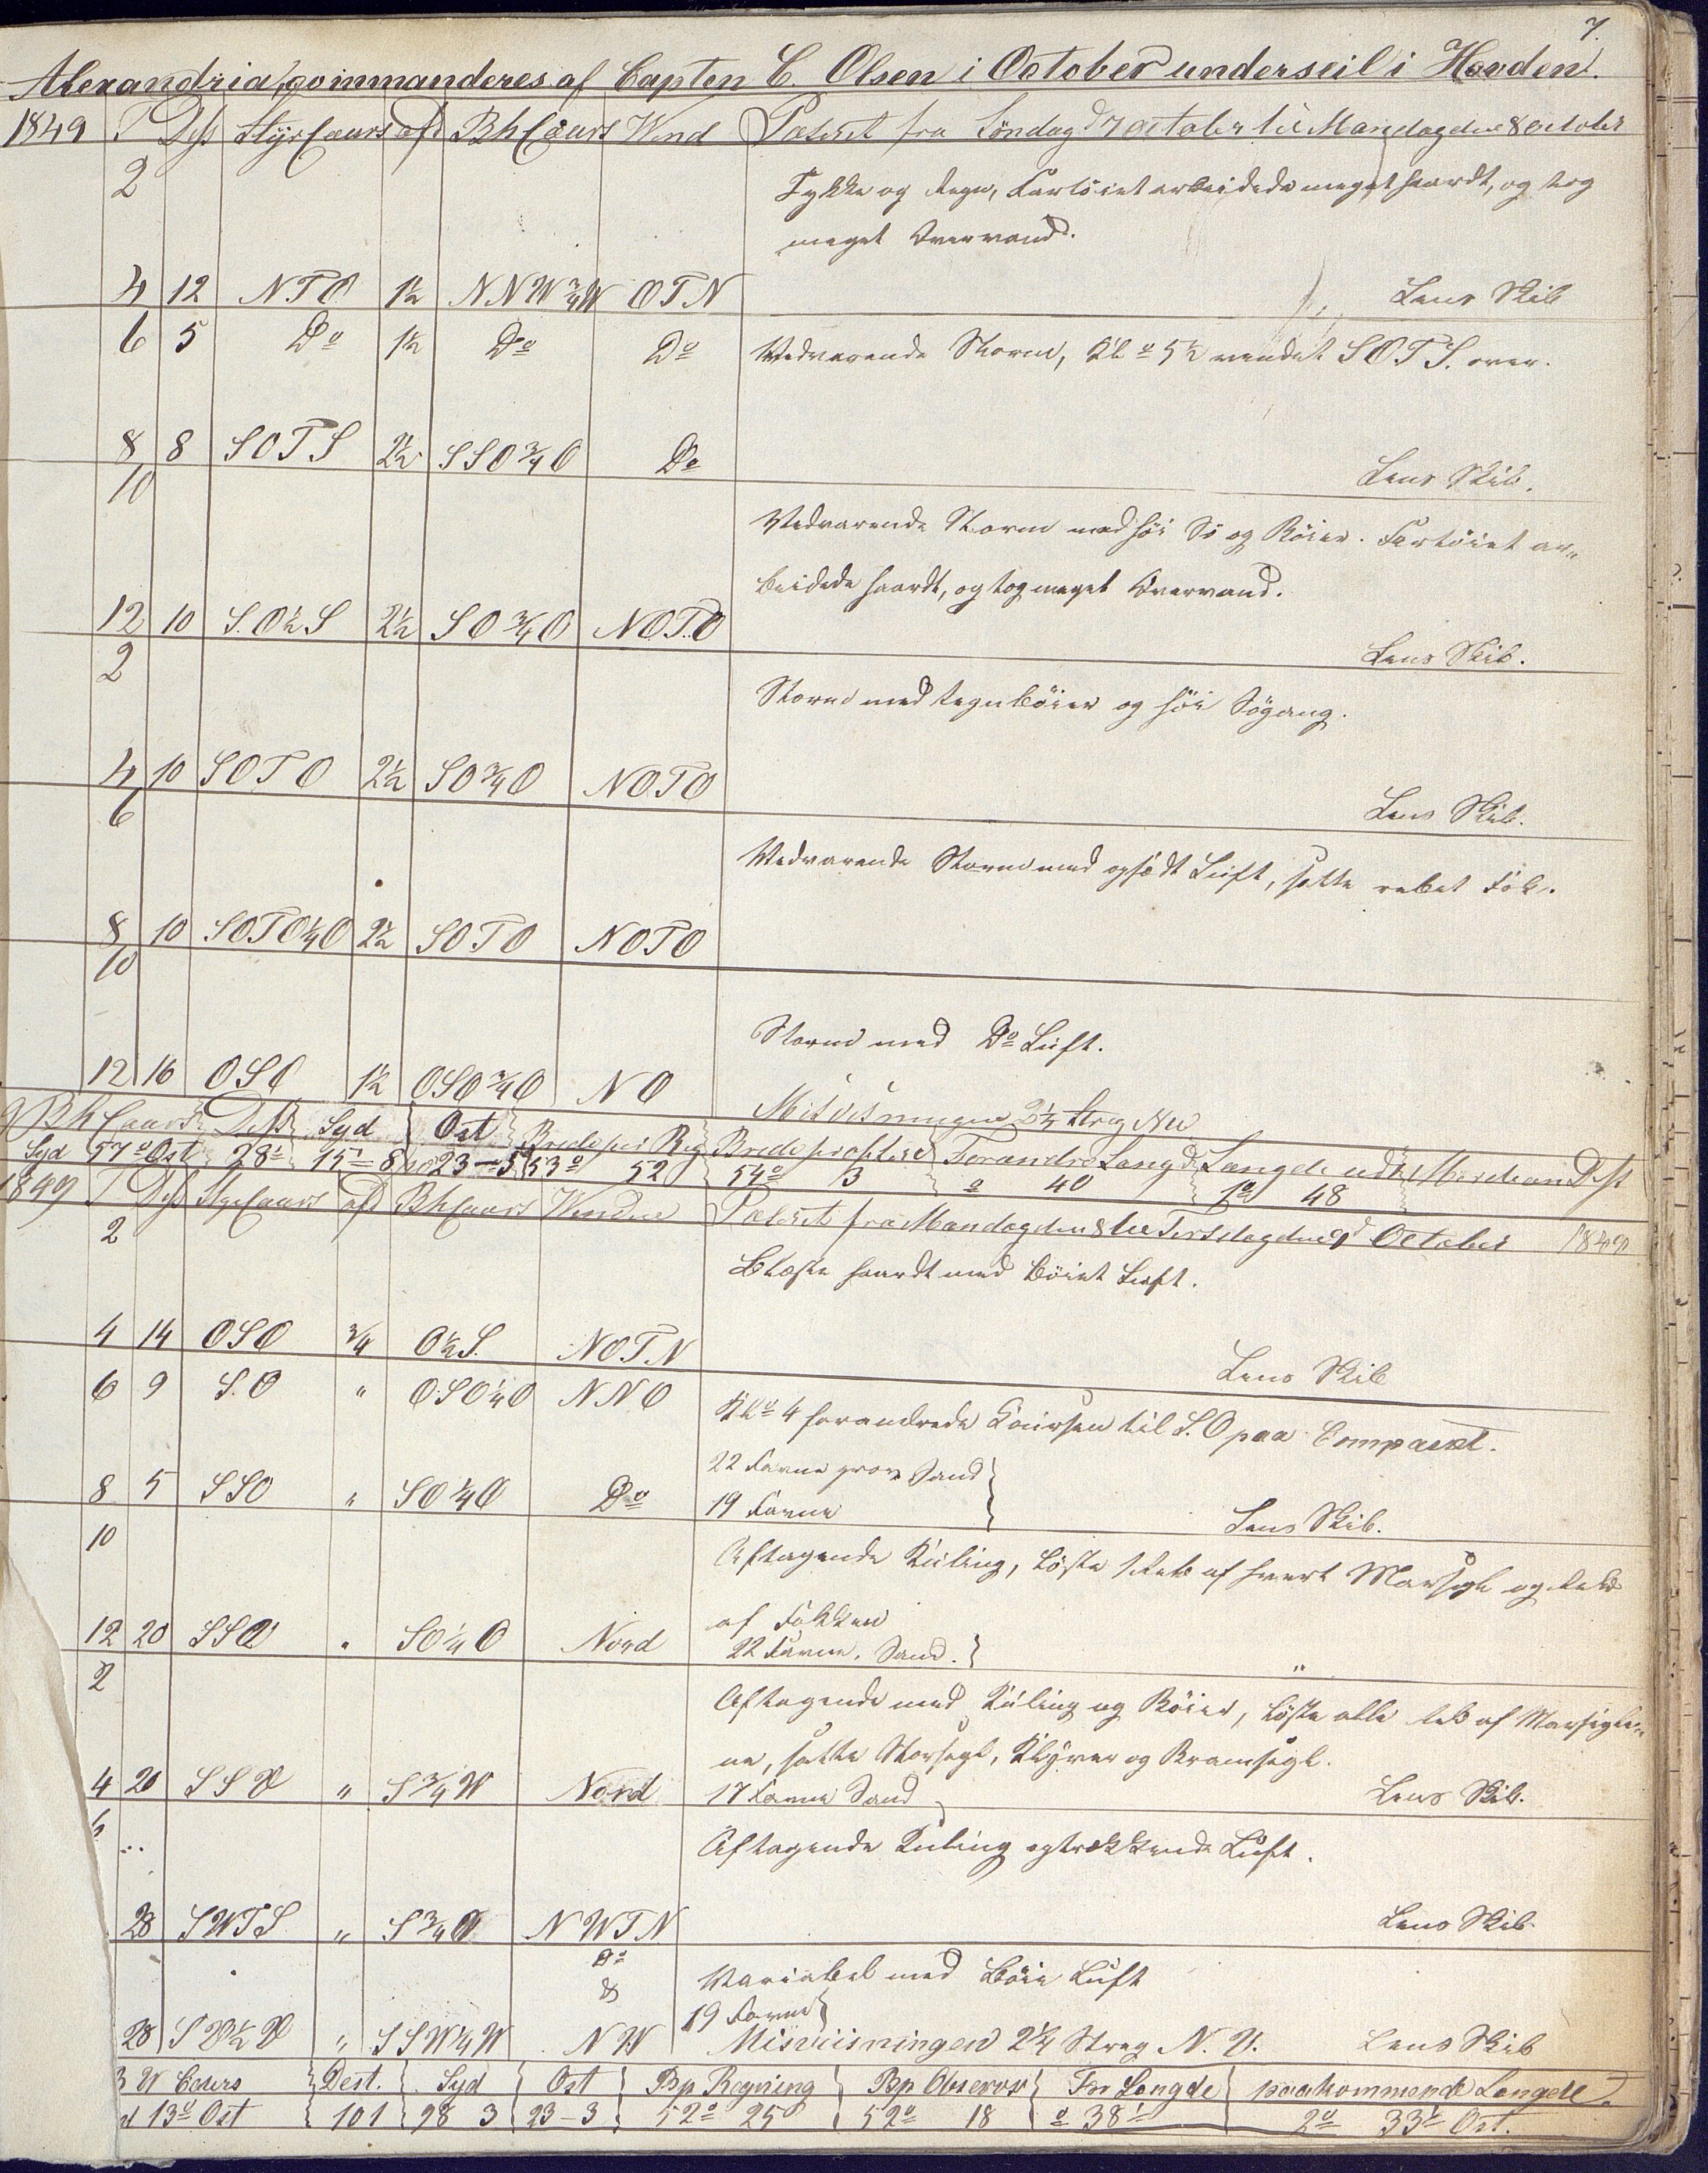 7.
Alexandria, commanderes af Capten C. Olsen i October underseil i
1849 T Dist StyrCours afd BhCours Wend Passeret fra Söndag d 7 October til Mandag den 8 October
2 Tykke og Regn, Fartöiet arbeidede meget haardt, og tog
meget Overvand.
4 12 NTO 1½ NNW¾W OTN Lens Skib
6 5 Do 1½ Do Do Vedvarende Storm, Kl o 5½ vendt SOTS. over.
8 8 SOTS 2½ SSO¾O Do Lens Skib.
10
Vedvarende Storm med höi Sö og Böier. Fartöiet ar„
beidede haardt, og tog meget Overvand.
12 10 S.O½S 2½ SO¾O NOTO Lens Skib.
2
Storm med Regnböier og höi Sögang.
4 10 SOTO 2½ SO¾O NOTO Lens Skib.
6
Vedvarende Storm med Luft, satte rebet Fok.
8 10 SOTO¼O 2½ SOTO NOTO
10
Storm med Do Luft.
12 16 OSO 1½ OSO¾O NO
Misvisningen 2¼ Streg NW
BhCours Dist Syd Ost Brede per Reg Brede Forandre Langde Langde
Syd 57o Ost 28' 15'–8 23–5 53o 52 54o 3 o 40 1o 48
1849 T Dist StyrCours afd BhCours Vinden Passeret fra Mandag den 8 til Tirsdag den 9 October 1849
2 Blæste haardt med böiet Luft.
4 14 OSO ¾ O½S. NOTN Lens Skib
6 9 S.O „ OSO¼O NNO Klo 4 forandrede Coursen til S.O paa Compasset.
22 Favne grov Sand
8 5 SSO „ SO¼O Do 19 Favne Lens Skib.
10 Aftagende Kuling, löste 1 Reb af hvert Marsseil og Reb
af Fokken
12 20 SSO „ SO¼O Nord 22 Favne, Sand. „
2 Aftagende med Kuling og Böier, löste alle Reb af Marsseile„
ne, satte Storseil, Klyver og Bramseil.
4 20 SSO „ S¾W Nord 17 Favne Sand Lens Skib.
6 Aftagende Kuling og trækkende Luft.
28 SWTS „ S¾O NWTN Lens Skib
Do
& Variabel med Böie Luft
19 Favne
28 SO½O „ SSW¼W NW Misviisningen 2¼ Streg N. V. Lens Skib
W Cours Dest. Syd Ost Bp Regning Bp Observ For Langde paakommende Langde.
d 13o Ost 101 98 3 23–3 52o 25 52o 18 o 38' 2o 33' Ost.